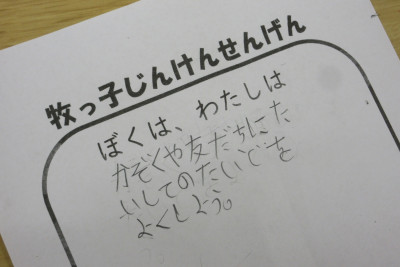 牧っ子じんけんせんげん
ぼくは、わたしは
かぞくや友だちにた
いしてのたいどを
よくしよう。